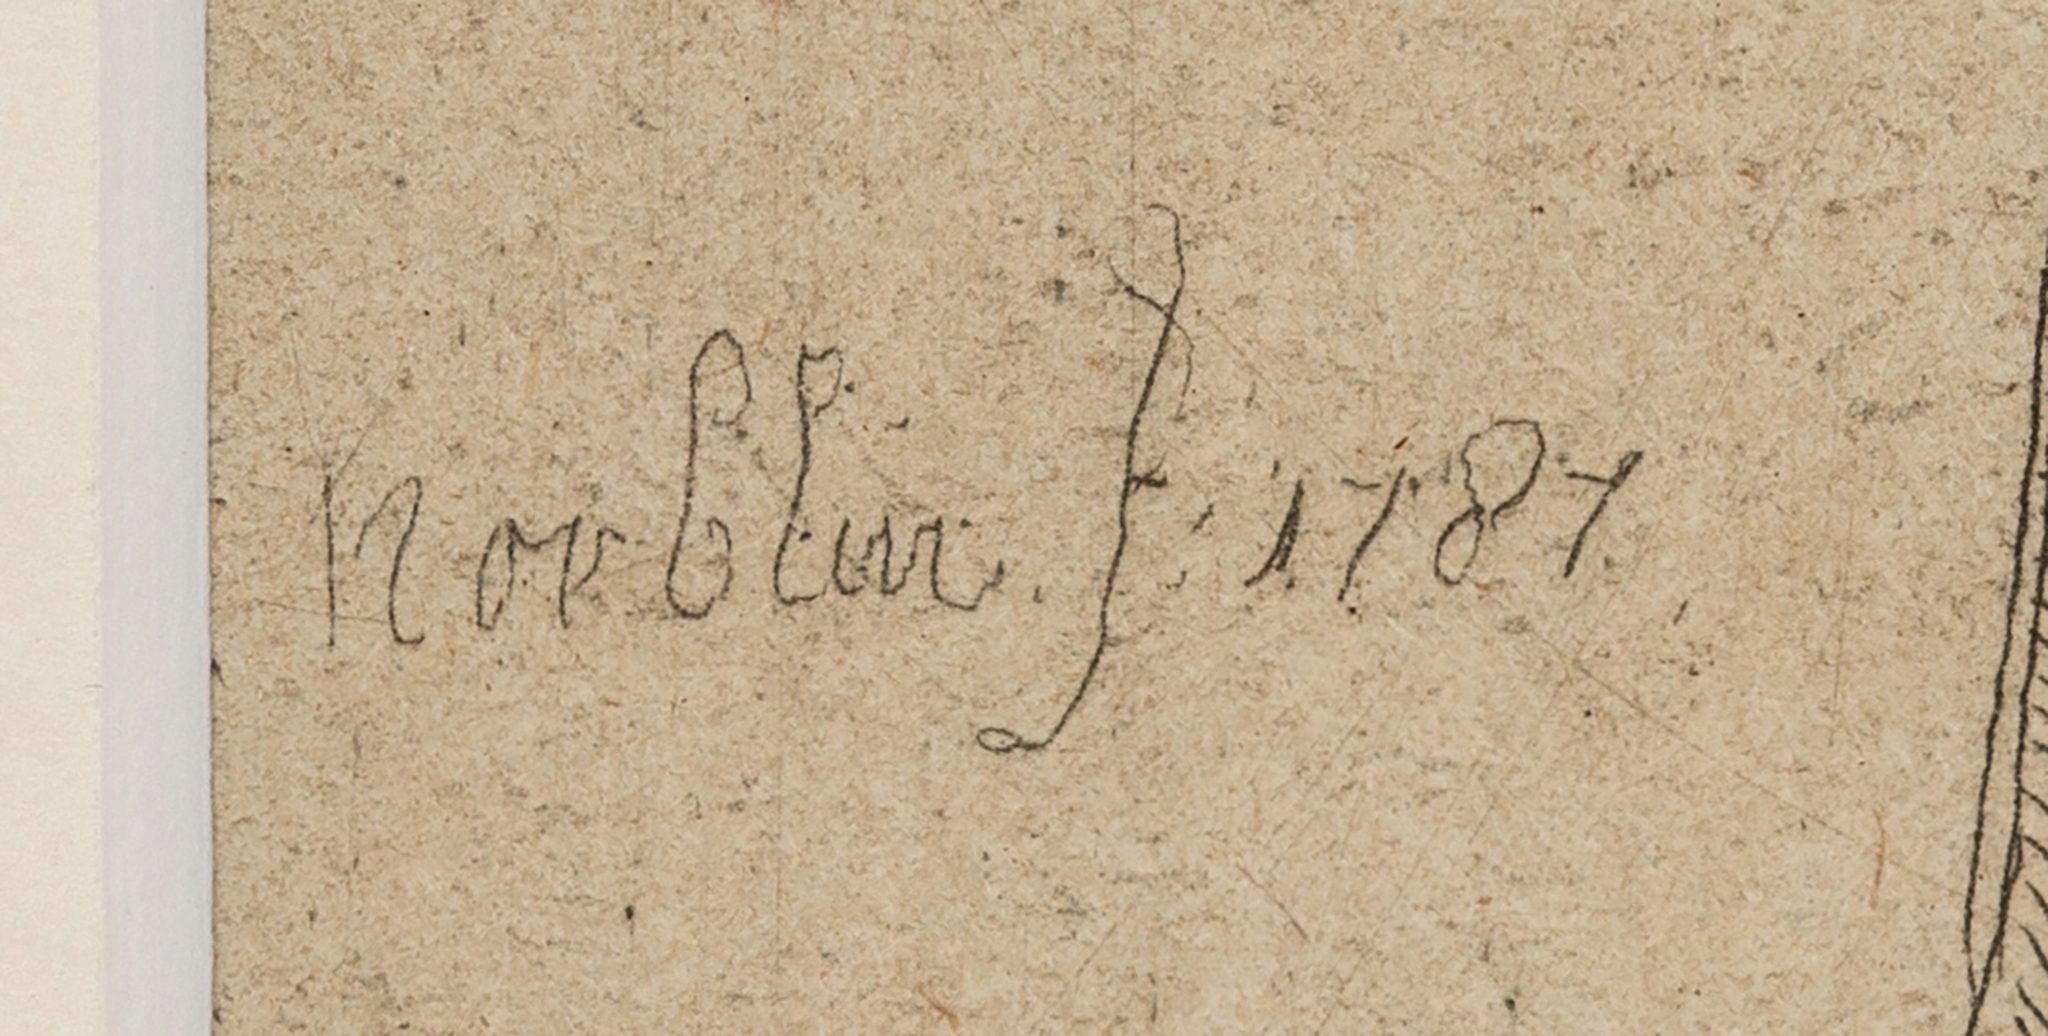 Norblin f. 1787